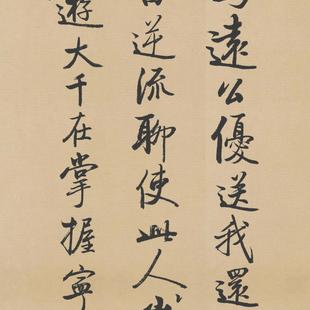 遠公優送我還
逆流聊使此人
遊大千在掌握寧